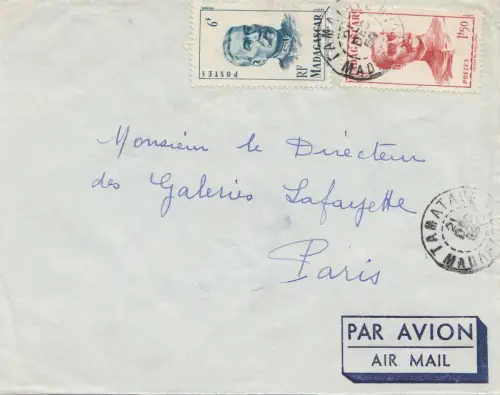 6F
MADAGASCAR
RF
POSTES
1F50
MADAGASCAR
POSTES
TAMATAVE
MAD
Monsieur le Directeur
des Galeries Lafayette
Paris
TAMATAVE
MADAGASCAR
PAR AVION
AIR MAIL